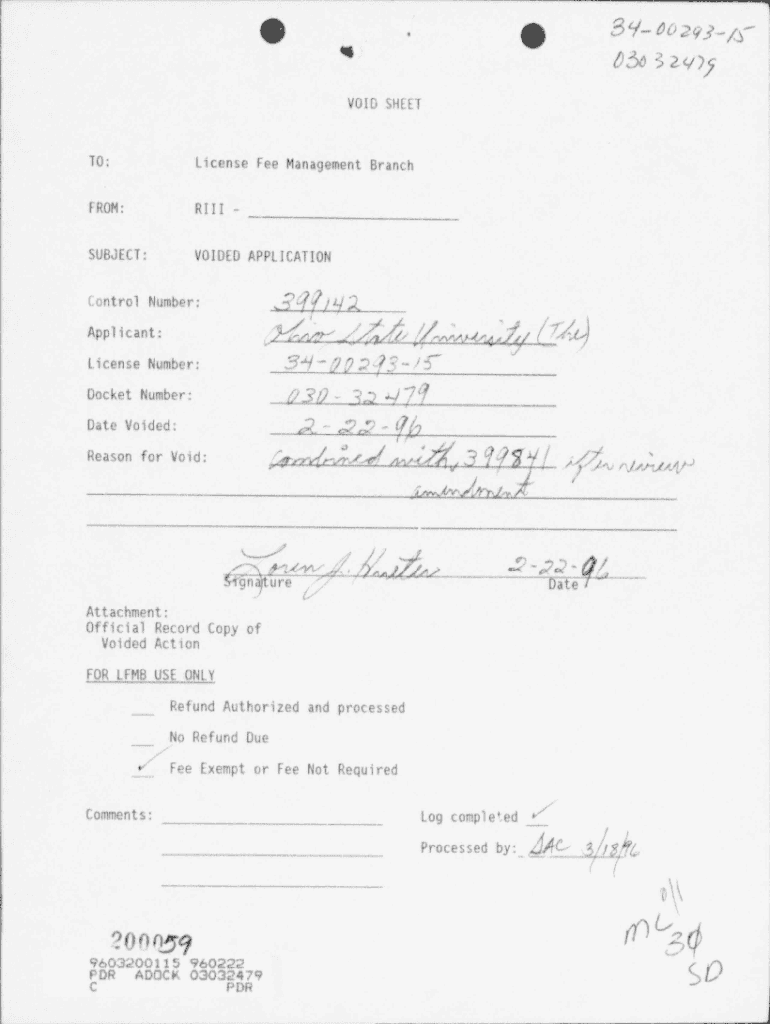 34-00293-15
03032479
VOID SHEET
TO: License Fee Management Branch
FROM: RIII -
SUBJECT: VOIDED APPLICATION
Control Number: 399142
Applicant: Ohio State University (The)
License Number: 34-00293-15
Docket Number: 030-32479
Date Voided: 2-22-96
Reason for Void: Combined with 399841 after review
amendment
Loren J. 2-22-96
Signature Date
Attachment:
Official Record Copy of
Voided Action
FOR LFMB USE ONLY
Refund Authorized and processed
No Refund Due
✓ Fee Exempt or Fee Not Required
Comments: Log completed ✓
Processed by: DAC 3/18/96
0/1
ML 30
SD
200059
9603200115 960222
PDR ADOCK 03032479
C PDR